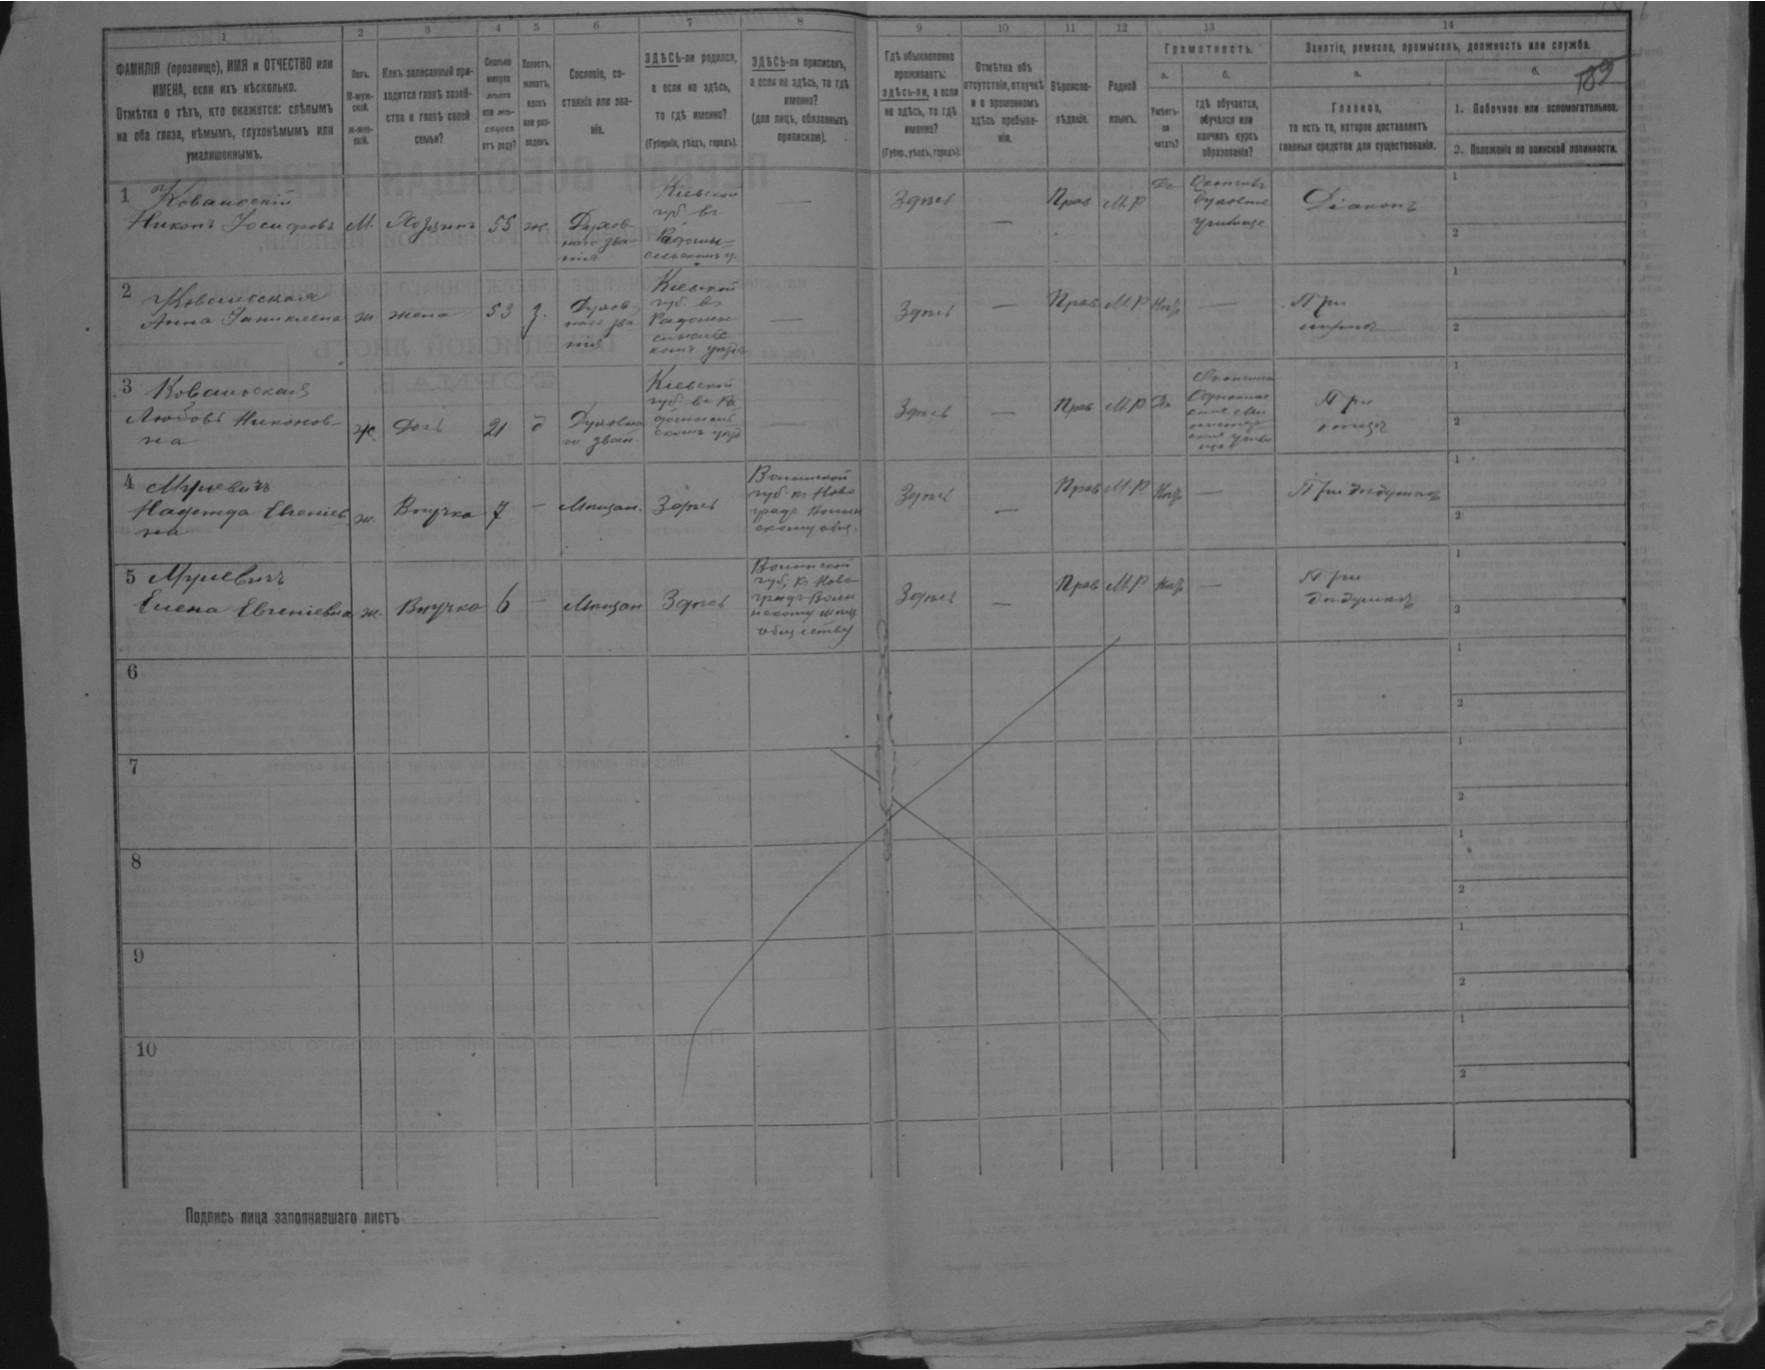 1 2 3 4 5 6 7 8 9 10 11 12 13 14
ФАМИЛІЯ (прозвище), ИМЯ и ОТЧЕСТВО или
ИМЕНА, если ихъ нѣсколько.
Отмѣтка о тѣхъ, кто окажется: слѣпымъ
на оба глаза, нѣмымъ, глухонѣмымъ или
умалишеннымъ.
Полъ.
М-муж-
ской.
Ж-жен-
скій.
Какъ записанный при-
ходится главѣ хозяй-
ства и главѣ своей
семьи?
Сколько
минуло
лѣтъ
или мѣ-
сяцевъ
отъ роду?
Холостъ,
женатъ,
вдовъ
или раз-
веденъ.
Сословіе, со-
стояніе или зва-
ніе.
ЗДѢСЬ-ли родился,
а если не здѣсь,
то гдѣ именно?
(Губернія, уѣздъ, городъ).
ЗДѢСЬ-ли приписанъ,
а если не здѣсь, то гдѣ
именно?
(для лицъ, обязанныхъ
припискою).
Гдѣ обыкновенно
проживаетъ:
здѣсь-ли, а если
не здѣсь, то гдѣ
именно?
(Губер., уѣздъ, городъ).
Отмѣтка объ
отсутствіи, отлучкѣ
и о временномъ
здѣсь пребыва-
ніи.
Вѣроиспо-
вѣданіе.
Родной
языкъ.
Грамотность.
а.
Умѣетъ-
ли
читать?
б.
гдѣ обучается,
обучался или
кончилъ курсъ
образованія?
Занятіе, ремесло, промыселъ, должность или служба.
а.
Главное,
то есть то, которое доставляетъ
главныя средства для существованія.
б.
189
1. Побочное или вспомогательное.
2. Положеніе по воинской повинности.
1 Ковальскій
Никонъ Іосифовъ М. Хозяинъ 55 ж. Духов-
наго зва-
нія
Кіевской
губ. въ
Радомы-
сльскомъ у.
— Здѣсь — Прав М.Р Да
Духовное
училище
Діаконъ
1
2
2 Ковальская
Анна ж жена 53 з. Духов
наго зва
нія
Кіевской
губ. въ
Радомы
сльскомъ уѣздѣ
— Здѣсь — Прав М.Р —
При
мужѣ
1
2
3 Ковальская
Любовь Никонов-
на ж Дочь 21 д Духовна
го зван
Кіевской
губ. въ Ра
— Здѣсь — Прав М.Р Да
При
отцѣ
1
2
4 Мулевичъ
Надежда Евгеніев
на ж. Внучка 7 — Мѣщан. Здѣсь
Волынской
губ. къ Ново
градъ Волын
скому общ.
Здѣсь — Прав М.Р —
При дѣдушкѣ
1
2
5 Мулевичъ
Елена Евгеніевна ж. Внучка 6 — Мѣщан Здѣсь
Волынской
губ. къ Ново
градъ-Волы
нскому мѣщ
обществу
Здѣсь — Прав М.Р —
При
дѣдушкѣ
1
2
6
1
2
7
1
2
8
1
2
9
1
2
10
1
2
Подпись лица заполнявшаго листъ